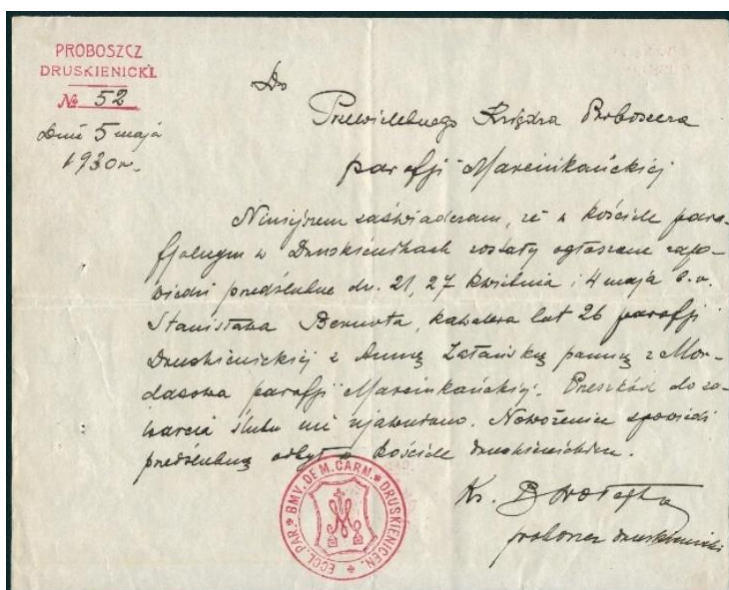 PROBOSZCZ
DRUSKIENICKI.
№ 52
Dnia 5 maja
1930 r.
Do
Przewielebnego Księdza Proboszcza
parafji Marcinkańckiej
Niniejszem zaświadczam, że w kościele para-
fjalnym w Druskienikach zostały ogłoszone zapo-
wiedzi przedślubne dn. 21, 27 kwietnia i 4 maja b. r.
Stanisława Bernota, kawalera lat 26 parafji
Druskienickiej z Anną panną z Mor-
dasowa parafji Marcinkańckiej. Przeszkód do za-
warcia ślubu nie ujawniono. Nowożeniec spowiedź
przedślubną odbył w kościele druskienickim.
ECCL. PAR. BMV. DE M. CARM. DRUSKIENICEN.
Ks.
proboszcz druskienicki